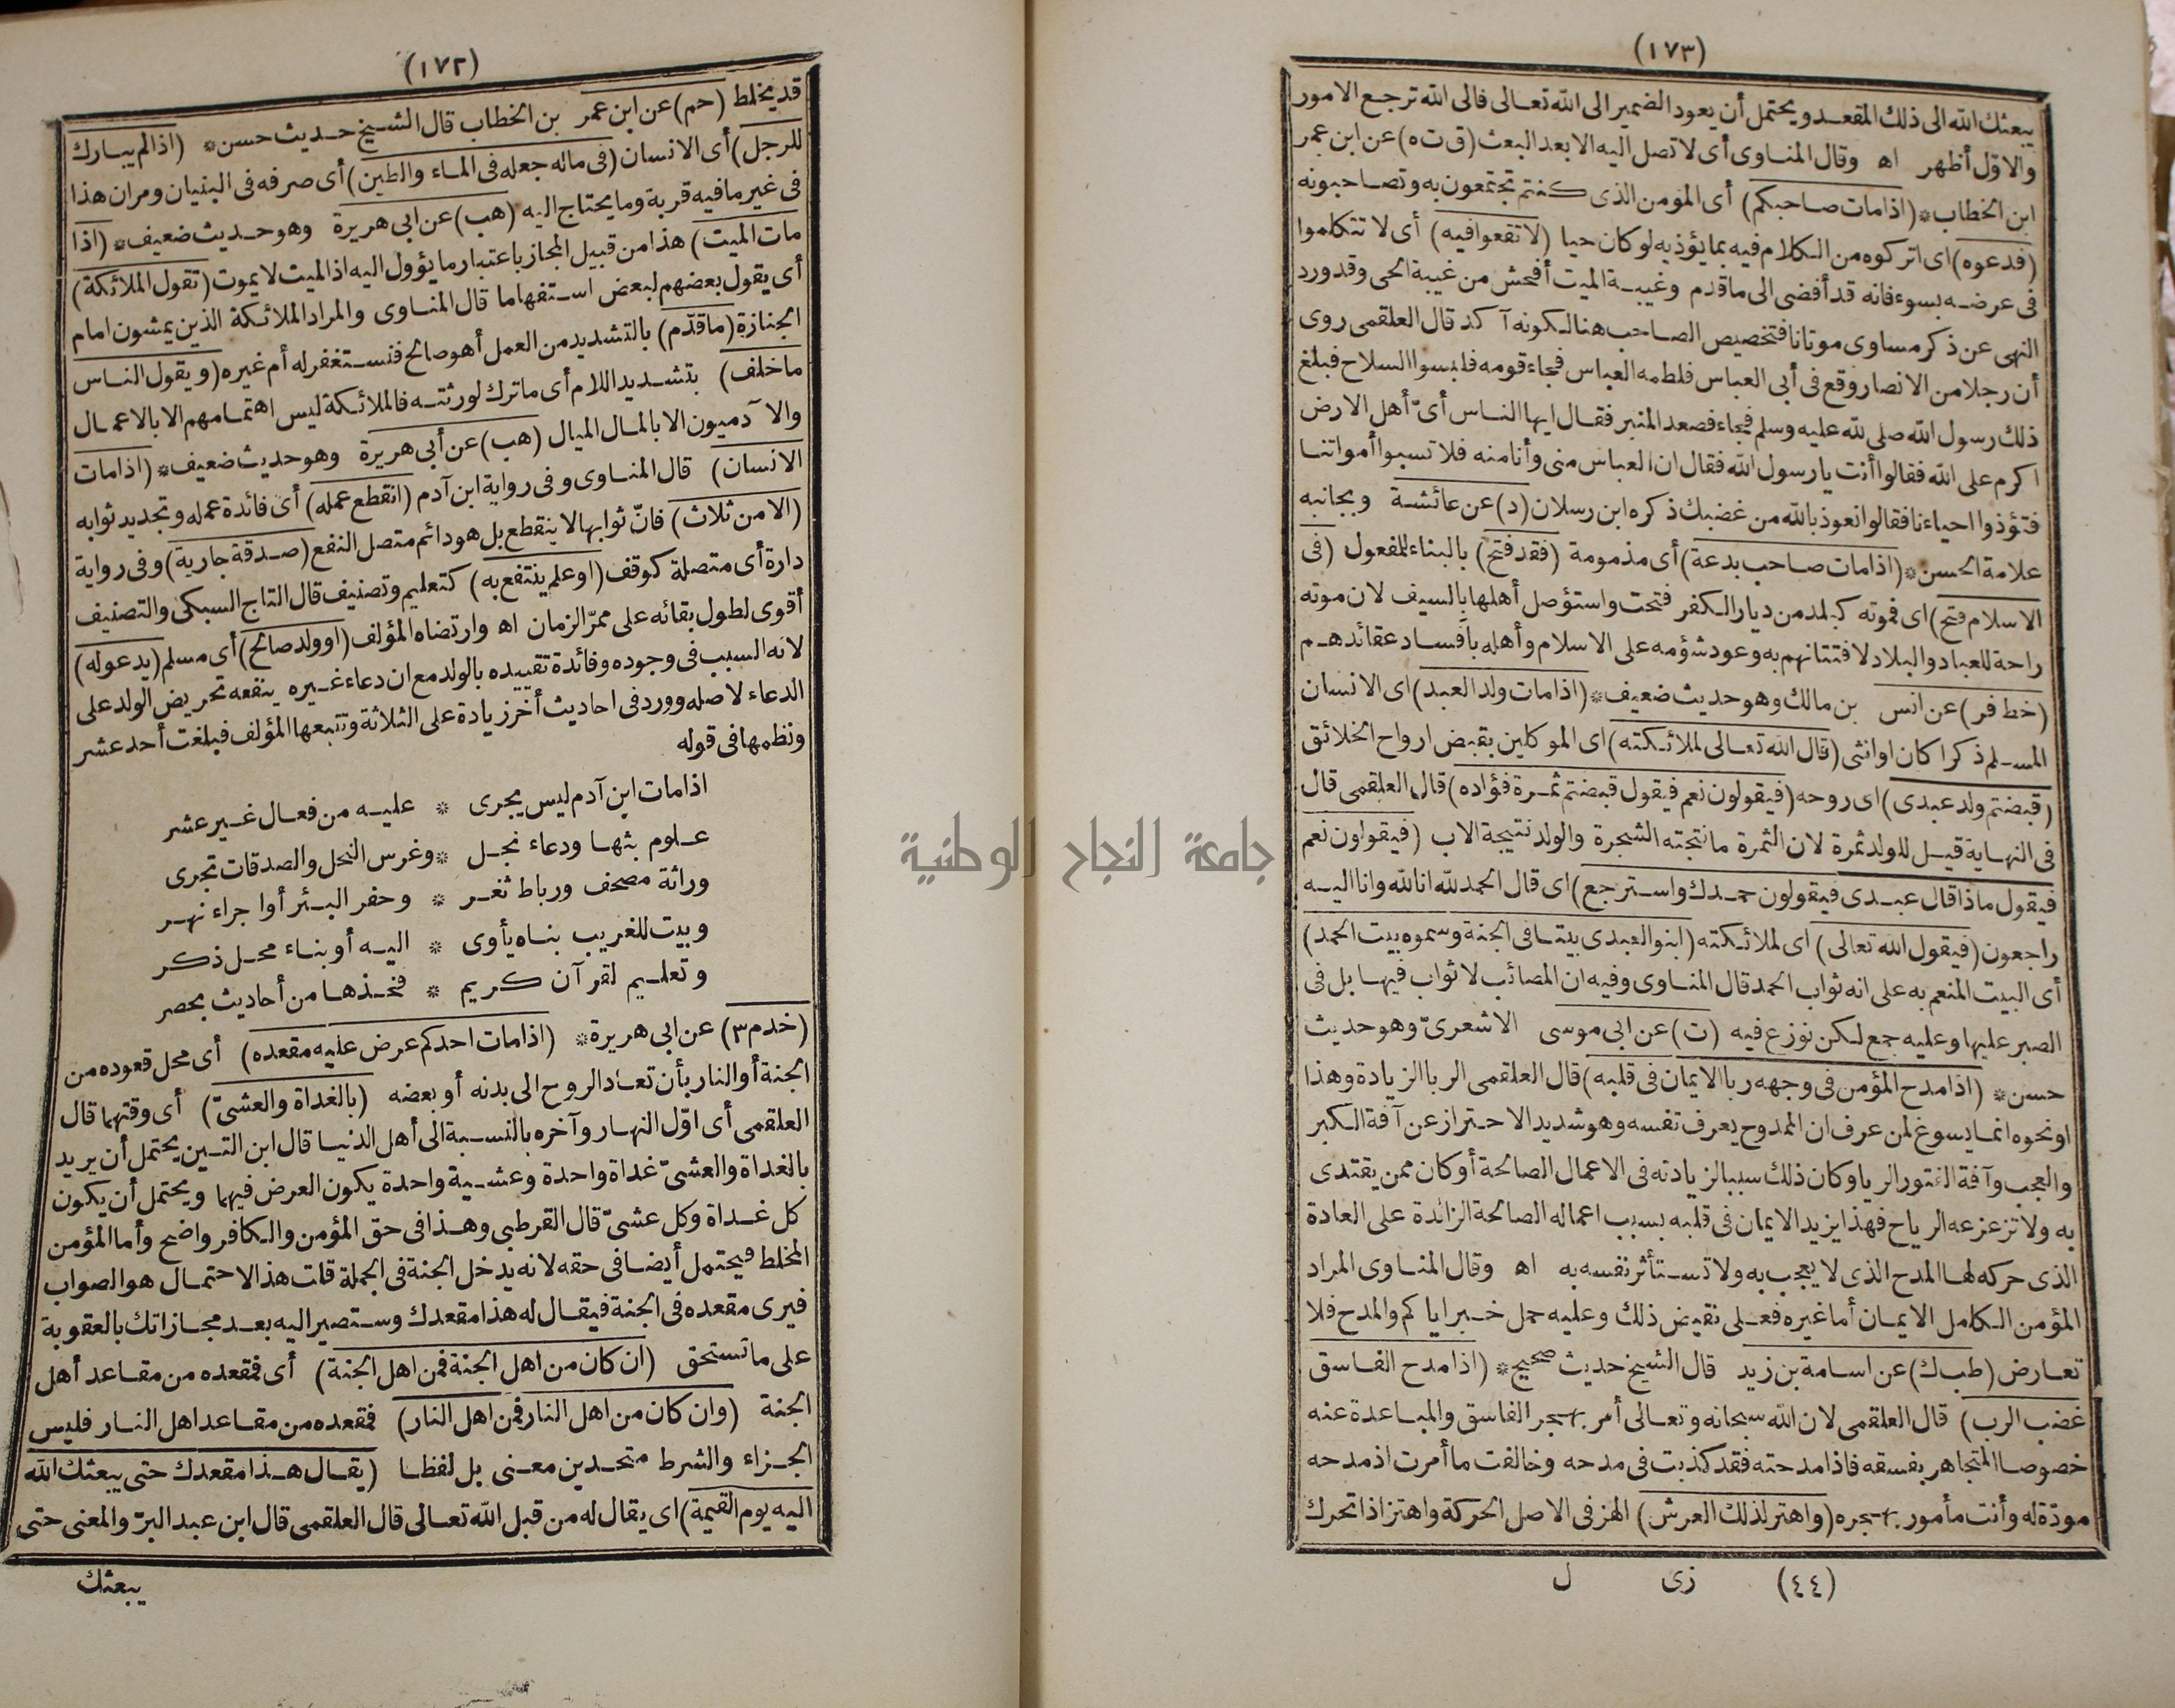 (١٧٢)
قد يخلط (حم) عن ابن عمر بن الخطاب قال الشيخ حديث حسن * (اذا لم يبارك
للرجل) أى الانسان (فى ماله جعله فى الماء والطين) أى صرفه فى البنيان ومر ان هذا
فى غير ما فيه قربة وما يحتاج اليه (هب) عن ابى هريرة وهو حديث ضعيف * (اذا
مات الميت) هذا من قبيل المجاز باعتبار ما يؤول اليه اذ الميت لا يموت (تقول الملائكة)
أى يقول بعضهم لبعض استفهاما قال المناوى والمراد الملائكة الذين يمشون امام
الجنازة (ما قدّم) بالتشديد من العمل أهو صالح فنستغفر له أم غيره (ويقول الناس
ما خلف) بتشديد اللام أى ما ترك لورثته فالملائكة ليس اهتمامهم الا بالاعمال
والآدميون الا بالمال الميال (هب) عن أبى هريرة وهو حديث ضعيف * (اذا مات
الانسان) قال المناوى وفى رواية ابن آدم (انقطع عمله) أى فائدة عمله وتجديد ثوابه
(الا من ثلاث) فانّ ثوابها لا ينقطع بل هو دائم متصل النفع (صدقة جارية) وفى رواية
دارة أى متصلة كوقف (او علم ينتفع به) كتعليم وتصنيف قال التاج السبكى والتصنيف
أقوى لطول بقائه على ممرّ الزمان اه وارتضاه المؤلف (او ولد صالح) أى مسلم (يدعو له)
لانه السبب فى وجوده وفائدة تقييده بالولد مع ان دعاء غيره ينفعه تحريض الولد على
الدعاء لاصله وورد فى احاديث أخر زيادة على الثلاثة وتتبعها المؤلف فبلغت أحد عشر
ونظمها فى قوله
اذا مات ابن آدم ليس يجرى * عليه من فعال غير عشر
علوم بثها ودعاء نجل * وغرس النخل والصدقات تجرى
وراثة مصحف ورباط ثغر * وحفر البئر أو اجراء نهر
وبيت للغريب بناه يأوى * اليه أو بناء محل ذكر
وتعليم لقرآن كريم * فخذها من أحاديث بحصر
(خدم ٣) عن ابى هريرة * (اذا مات احدكم عرض عليه مقعده) أى محل قعوده من
الجنة أو النار بأن تعاد الروح الى بدنه أو بعضه (بالغداة والعشىّ) أى وقتهما قال
العلقمى أى اوّل النهار وآخره بالنسبة الى أهل الدنيا قال ابن التين يحتمل أن يريد
بالغداة والعشىّ غداة واحدة وعشية واحدة يكون العرض فيهما ويحتمل أن يكون
كل غداة وكل عشىّ قال القرطبى وهذا فى حق المؤمن والكافر واضح وأما المؤمن
المخلط فيحتمل أيضا فى حقه لانه يدخل الجنة فى الجملة قلت هذا الاحتمال هو الصواب
فيرى مقعده فى الجنة فيقال له هذا مقعدك وستصير اليه بعد مجازاتك بالعقوبة
على ما تستحق (ان كان من اهل الجنة فمن اهل الجنة) أى فمقعده من مقاعد أهل
الجنة (وان كان من اهل النار فمن اهل النار) فمقعده من مقاعد اهل النار فليس
الجزاء والشرط متحدين معنى بل لفظا (يقال هذا مقعدك حتى يبعثك الله
اليه يوم القيمة) اى يقال له من قبل الله تعالى قال العلقمى قال ابن عبد البرّ والمعنى حتى
يبعثك
(١٧٣)
يبعثك الله الى ذلك المقعد ويحتمل أن يعود الضمير الى الله تعالى فالى الله ترجع الامور
والاوّل أظهر اه وقال المناوى أى لا تصل اليه الا بعد البعث (ق ت ه) عن ابن عمر
ابن الخطاب * (اذا مات صاحبكم) أى المؤمن الذى كنتم تجتمعون به وتصاحبونه
(فدعوه) اى اتركوه من الكلام فيه بما يؤذيه لو كان حيا (لا تقعوا فيه) أى لا تتكلموا
فى عرضه بسوء فانه قد أفضى الى ما قدم وغيبة الميت أفحش من غيبة الحى وقد ورد
النهى عن ذكر مساوى موتانا فتخصيص الصاحب هنا لكونه آكد قال العلقمى روى
أن رجلا من الانصار وقع فى أبى العباس فلطمه العباس فجاء قومه فلبسوا السلاح فبلغ
ذلك رسول الله صلى لله عليه وسلم فجاء فصعد المنبر فقال ايها الناس أىّ أهل الارض
اكرم على الله فقالوا أنت يا رسول الله فقال ان العباس منى وأنا منه فلا تسبوا أمواتنا
فتؤذوا احياءنا فقالوا نعوذ بالله من غضبك ذكره ابن رسلان (د) عن عائشة وبجانبه
علامة الحسن * (اذا مات صاحب بدعة) أى مذمومة (فقد فتح) بالبناء للمفعول (فى
الاسلام فتح) اى فموته كبلد من ديار الكفر فتحت واستؤصل أهلها بالسيف لان موته
راحة للعباد والبلاد لافتتانهم به وعود شؤمه على الاسلام وأهله بافساد عقائدهم
(خط فر) عن انس بن مالك وهو حديث ضعيف * (اذا مات ولد العبد) اى الانسان
المسلم ذكرا كان او انثى (قال الله تعالى لملائكته) اى الموكلين بقبض ارواح الخلائق
(قبضتم ولد عبدى) اى روحه (فيقولون نعم فيقول قبضتم ثمرة فؤاده) قال العلقمى قال
فى النهاية قيل للولد ثمرة لان الثمرة ما نتجته الشجرة والولد نتيجة الاب (فيقولون نعم
فيقول ماذا قال عبدى فيقولون حمدك واسترجع) اى قال الحمد لله انا لله وانا اليه
راجعون (فيقول الله تعالى) اى لملائكته (ابنوا لعبدى بيتا فى الجنة وسموه بيت الحمد)
أى البيت المنعم به على انه ثواب الحمد قال المناوى وفيه ان المصائب لا ثواب فيها بل فى
الصبر عليها وعليه جمع لكن نوزع فيه (ت) عن ابى موسى الاشعرىّ وهو حديث
حسن * (اذا مدح المؤمن فى وجهه ربا الايمان فى قلبه) قال العلقمى الربا الزيادة وهذا
او نحوه انما يسوغ لمن عرف ان الممدوح يعرف نفسه وهو شديد الاحتراز عن آفة الكبر
والعجب وآفة الفتور الريا وكان ذلك سببا لزيادته فى الاعمال الصالحة أو كان ممن يقتدى
به ولا تزعزعه الرياح فهذا يزيد الايمان فى قلبه بسبب اعماله الصالحة الزائدة على العادة
الذى حركه لها المدح الذى لا يعجب به ولا تستأثر نفسه به اه وقال المناوى المراد
المؤمن الكامل الايمان أما غيره فعلى نقيض ذلك وعليه حمل خبر اياكم والمدح فلا
تعارض (طب ك) عن اسامة بن زيد قال الشيخ حديث صحيح * (اذا مدح الفاسق
غضب الرب) قال العلقمى لان الله سبحانه وتعالى أمر بهجر الفاسق والمباعدة عنه
خصوصا المتجاهر بفسقه فاذا مدحته فقد كذبت فى مدحه وخالفت ما أمرت اذ مدحه
مودّة له وأنت مأمور بهجره (واهتز لذلك العرش) الهز فى الاصل الحركة واهتز اذا تحرك
(٤٤) زى ل
جامعة النجاح الوطنية